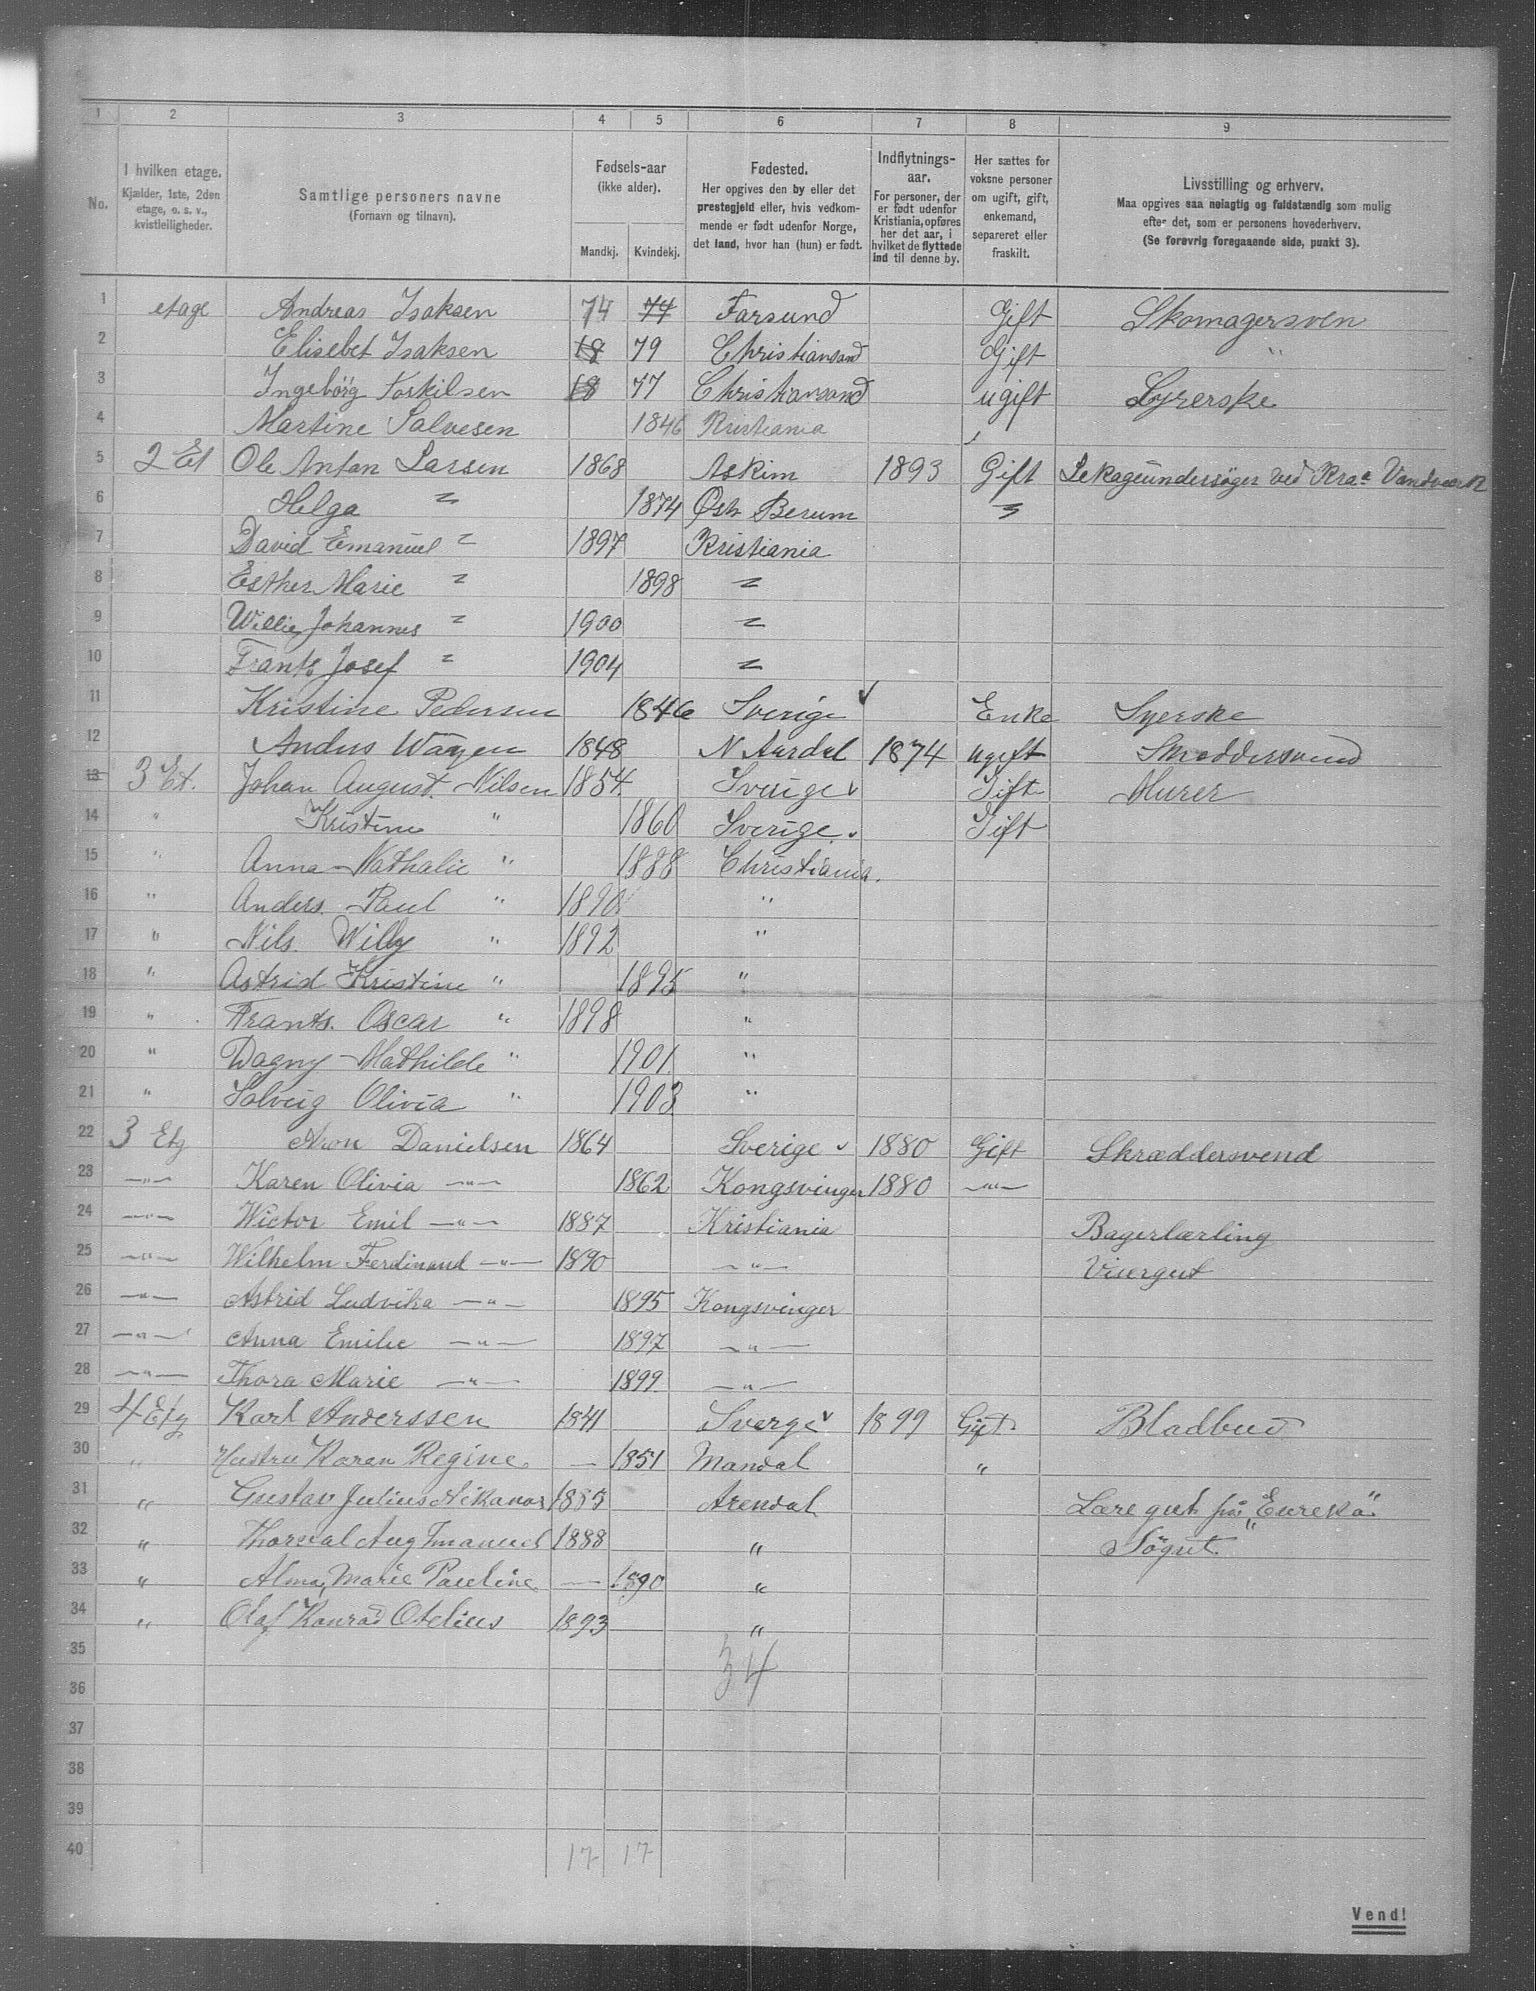 1 2 3 4 5 6 7 8 9
No.
I hvilken etage.
Kjælder, 1ste, 2den
etage, o. s. v.,
kvistleiligheder.
Samtlige personers navne
(Fornavn og tilnavn).
Fødsels-aar
(ikke alder).
Mandkj. Kvindekj.
Fødested.
Her opgives den by eller det
prestegjeld eller, hvis vedkom-
mende er født udenfor Norge,
det land, hvor han (hun) er født.
Indflytnings-
aar.
For personer, der
er født udenfor
Kristiania, opføres
her det aar, i
hvilket de flyttede
ind til denne by.
Her sættes for
voksne personer
om ugift, gift,
enkemand,
separeret eller
fraskilt.
Livsstilling og erhverv.
Maa opgives saa nøiagtig og fuldstændig som mulig
efter det, som er personens hovederhverv.
(Se forøvrig foregaaende side, punkt 3).
1 etage Andreas Isaksen 74 74 Farsund Gift Skomagersven
2 Elisebet Isaksen 18 79 Christiansand Gift "
3 Ingebørg Torkilsen 18 77 Christiansand ugift Syrerske
4 Martine Salvesen 1846 Kristiania
5 2 Et Ole Anton Larsen 1868 Askim 1893 Gift Lekageundersøger ved Kra Vandværk
6 Helga " 1874 Østr Berum "
7 David Emanuel " 1897 Kristiania
8 Esther Marie " 1898 "
9 Willie Johannes " 1900 "
10 Frants Josef " 1904 "
11 Kristine Pedersen 1846 Sverige Enke Syerske
12 Andus Wangen 1848 N Aurdal 1874 ugift Skreddersvend
13 3 Et. Johan August Nilsen 1854. Sverige Gift Murer
14 " Kristine " 1860 Sverige. Gift
15 " Anna Nathalie " 1888 Christiania.
16 " Anders Paul " 1890 "
17 " Nils Willy " 1892 "
18 " Astrid Kristine " 1895 "
19 " Frants. Oscar " 1898 "
20 " Dagny Mathilde " 1901 "
21 " Solveig Olivia " 1903 "
22 3 Etg Aron Danielsen 1864 Sverige 1880 Gift Skræddersvend
23 —"— Karen Olivia —"— 1862 Kongsvinger 1880 —"—
24 —"— Wictor Emil —"— 1887 Kristiania Bagerlærling
25 —"— Wilhelm Ferdinand —"— 1890 —"— Visergut
26 —"— Astrid Ludvika —"— 1895 Kongsvinger
27 —"— Anna Emilie —"— 1897 —"—
28 —"— Thora Marie —"— 1899 —"—
29 4 Etg Karl Anderssen 1841 Sverge 1899 Gift Bladbud
30 " Hustru Karen Regine. — 1851 Mandal "
31 " Gustav Julius Nikanor 1885 Arendal Lære gut på "Eureka"
32 " Thorval Aug Imanuel 1888 " Søgut
33 " Alma, Marie Pauline — 1890 "
34 " Olaf Konrad Otelius 1893 "
35 34
36
37
38
39
40 17 17
Vend!